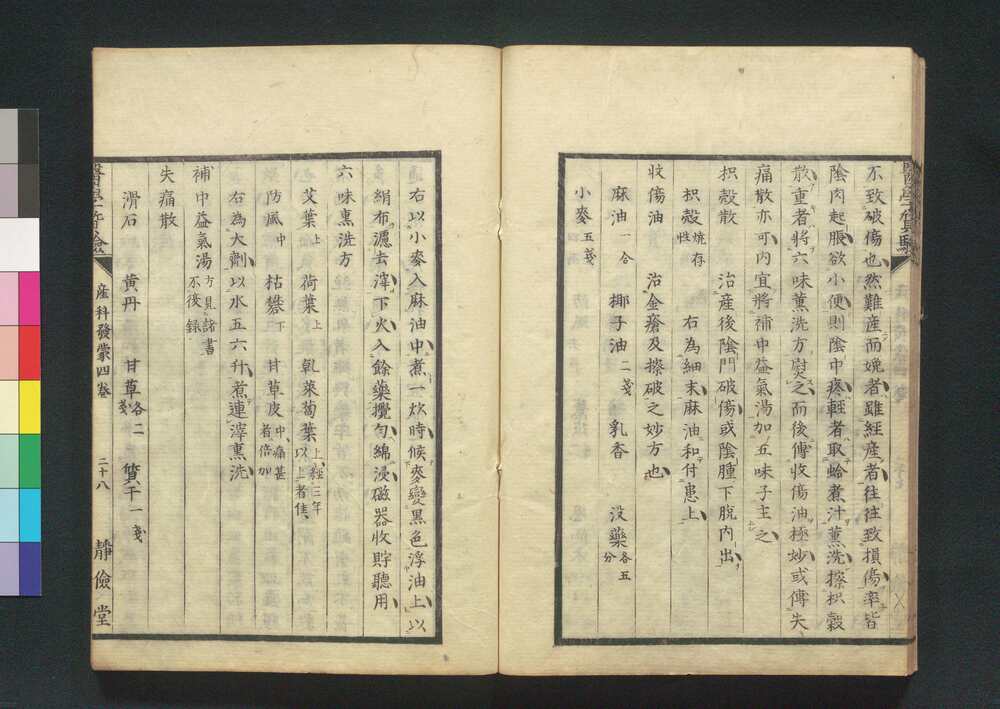 不致破傷也然難産而娩者雖經産者往往致損傷率皆
陰肉起脹欲小便則陰中疼輕者取蛤煮汁薰洗擦枳殼
散重者將六味薰洗方熨之而後傅收傷油極妙或傅失
痛散亦可内宜將補中益氣湯加五味子主之
枳殼散　治産後陰門破傷或陰腫下脫内出
枳殼燒存性　右為細末麻油和付患上
收傷油　治金瘡及擦破之妙方也
麻油一合　椰子油二戔　乳香　没藥各五分
小麥五戔
右以小麥入麻油中煮一炊時候麥變黒色浮油上以
絹布濾去滓下火入餘藥攪勻綿浸磁器收貯聽用
六味熏洗方
艾葉上　荷葉上　乹萊菔葉上經三年以上者佳
防風中　枯礬下　甘草皮中痛甚者倍加
右為大劑以水五六升煮連滓熏洗
補中益氣湯方見諸書不復録
失痛散
滑石　黄丹　甘草各二戔　寶干一戔
産科發蒙四卷　二十八　靜儉堂